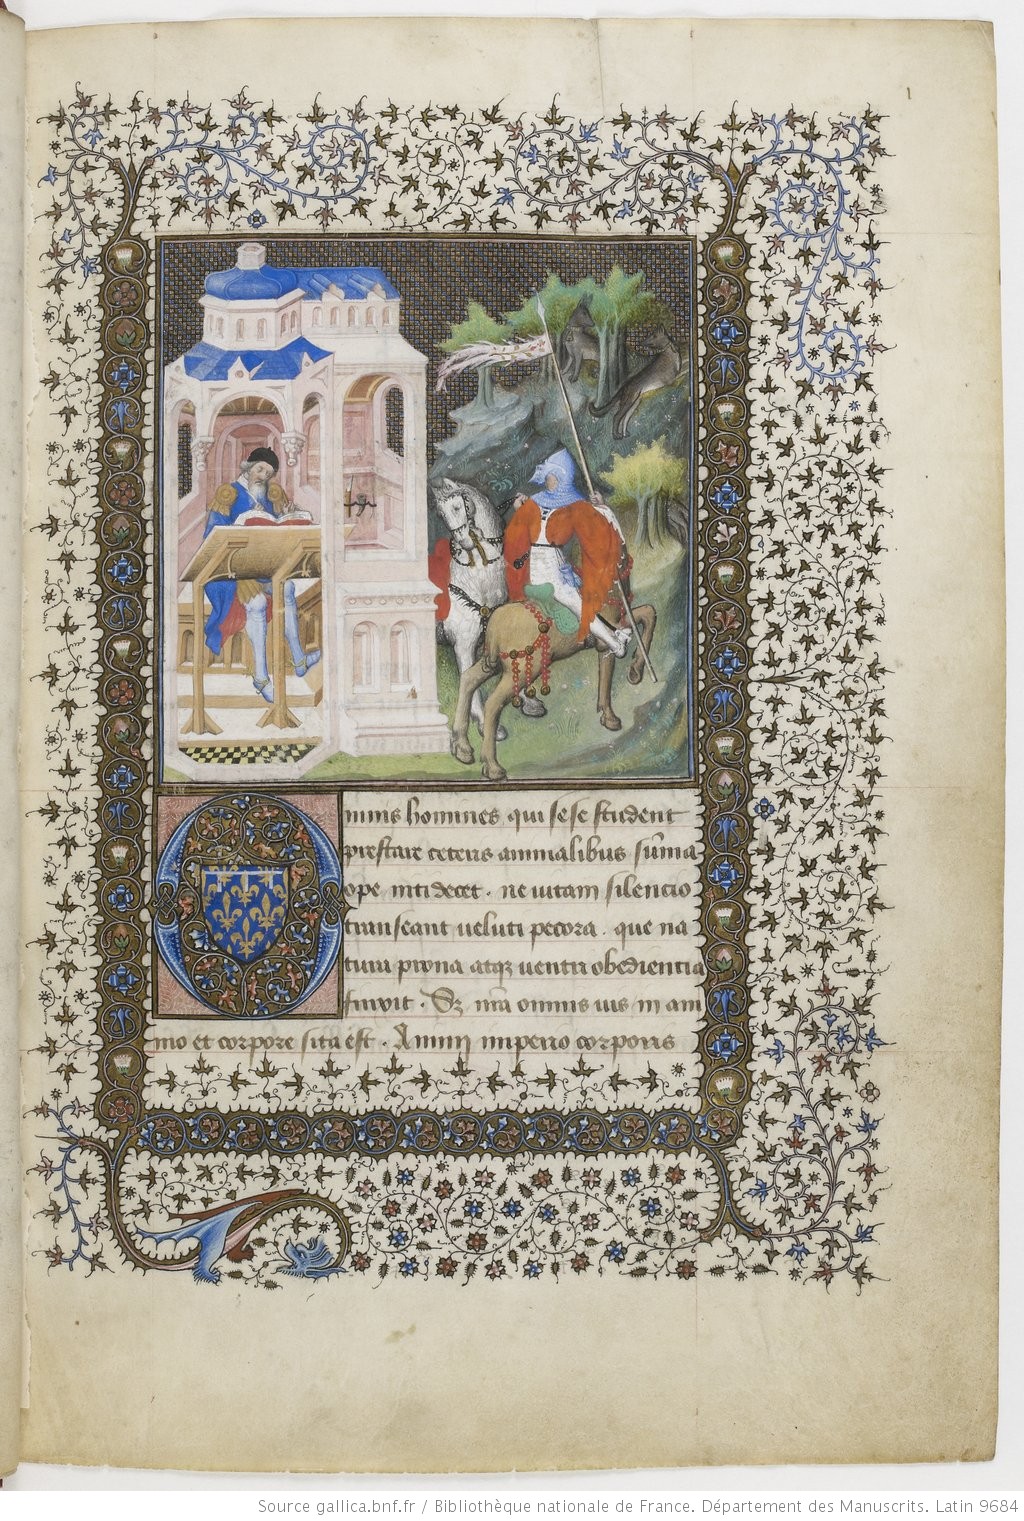 1
Omnis homines qui sese student
prestare ceteris animalibus su̅ma
ope niti decet . ne vitam silencio
transeant veluti pecora . que na
tura prona atqꝫ ventri obediencia
finxit . Sꝫ nr̅a omnis vis in ani
mo et corpore sita est . Animi imperio corporis
Source gallica.bnf.fr / Bibliothèque nationale de France. Département des Manuscrits. Latin 9684